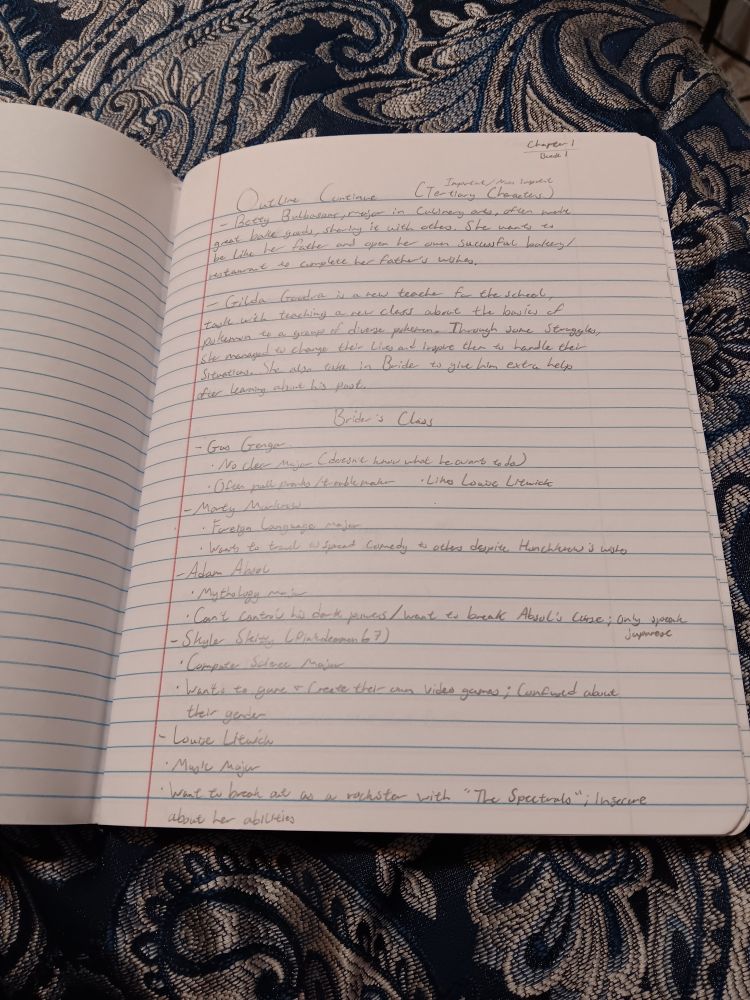 Chapter 1
Book 1
Important/Non Important
Outline Continue (Tertiary Characters)
- Betty Bulbasaur, major in Culinary arts, often make
great bake goods, sharing it with others. She wants to
be like her father and open her own successful bakery/
restaurant to complete her father's wishes.
- Gilda Goodra is a new teacher for the school,
task with teaching a new class about the basics of
pokemon to a group of diverse pokemon. Through some struggles,
she managed to change their lives and inspire them to handle their
situations. She also take in Brider to give him extra help
after learning about his past.
Brider's Class
- Gus Gengar
· No clear Major (doesn't know what he wants to do)
· Often pull pranks/troublemaker · Likes Louise Litwick
- Marty Murkrow
· Foreign Language Major
· Wants to travel & spread Comedy to others despite Honchkrow's wishes
- Adam Absol
· Mythology major
· Can't controls his dark powers/want to break Absol's Curse; only speak
Japanese
- Skyler Skitty (Pinkdeamon67)
· Computer Science Major
· Wants to game & Create their own video games; Confused about
their gender
- Louise Litwick
· Music Major
· Want to break out as a rockstar with "The Spectrals"; insecure
about her abilities